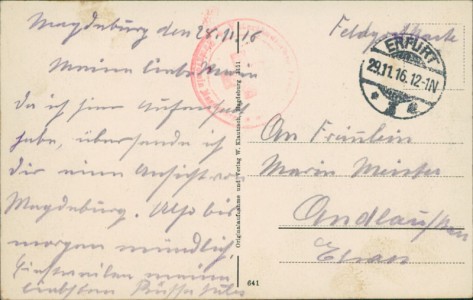 Magdeburg den 28.11.16
Meine liebe Marie
Da ich hier Aufenthalt
habe, übersende ich
dir eine Ansicht von
Magdeburg. Also bis
morgen mündlich.
Einstweilen meine
herzlichsten Grüsse
Originalaufnahme und Verlag W. Klautzsch, Magdeburg
641
Feldpostkarte
ERFURT
29.11.16.12-1N
An Fräulein
Marie Meister
Andlau
Elsass